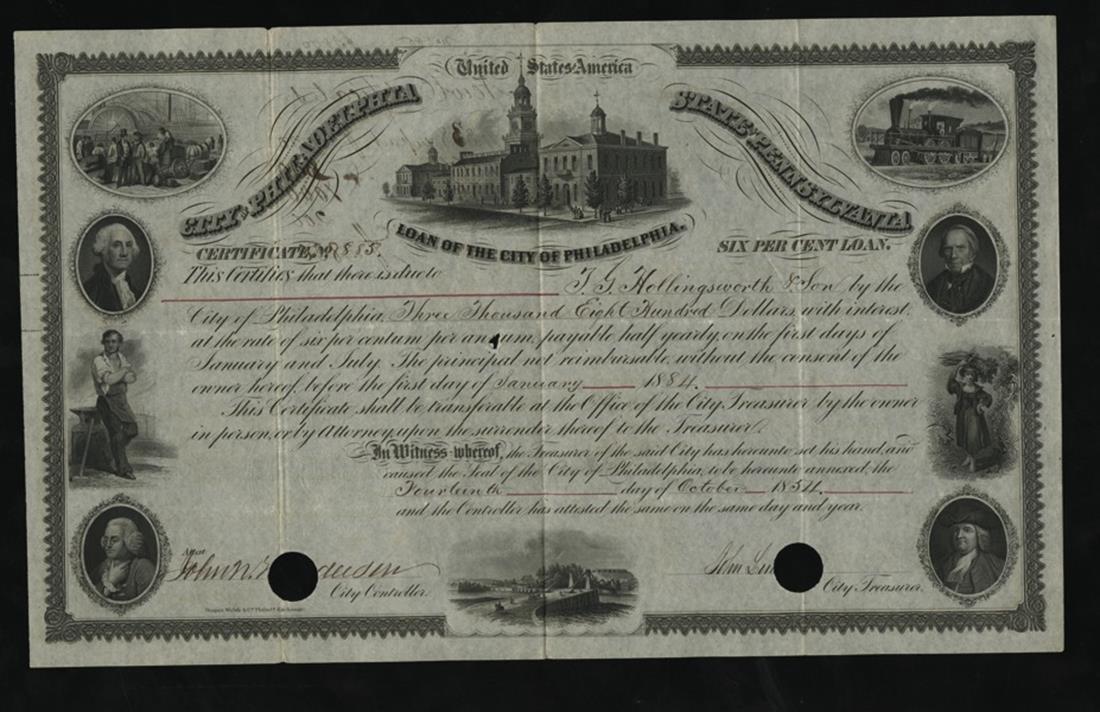 United States America
CITY OF PHILADELPHIA
STATE OF PENNSYLVANIA
LOAN OF THE CITY OF PHILADELPHIA.
CERTIFICATE, No. 885.
SIX PER CENT LOAN.
This Certifies that there is due to
T. G. Hollingsworth & Son by the
City of Philadelphia, Three Thousand Eight Hundred Dollars, with interest,
at the rate of six per centum per annum, payable half yearly, on the first days of
January and July. The principal not reimbursable, without the consent of the
owner hereof, before the first day of January 1884.
This Certificate shall be transferable at the Office of the City Treasurer by the owner
in person, or by Attorney, upon the surrender thereof to the Treasurer.
In Witness whereof, the Treasurer of the said City has hereunto set his hand, and
caused the Seal of the City of Philadelphia, to be hereunto annexed, the
Fourteenth day of October 1854.
and the Controller has attested the same on the same day and year.
Attest
John N.
John
City Controller.
City Treasurer.